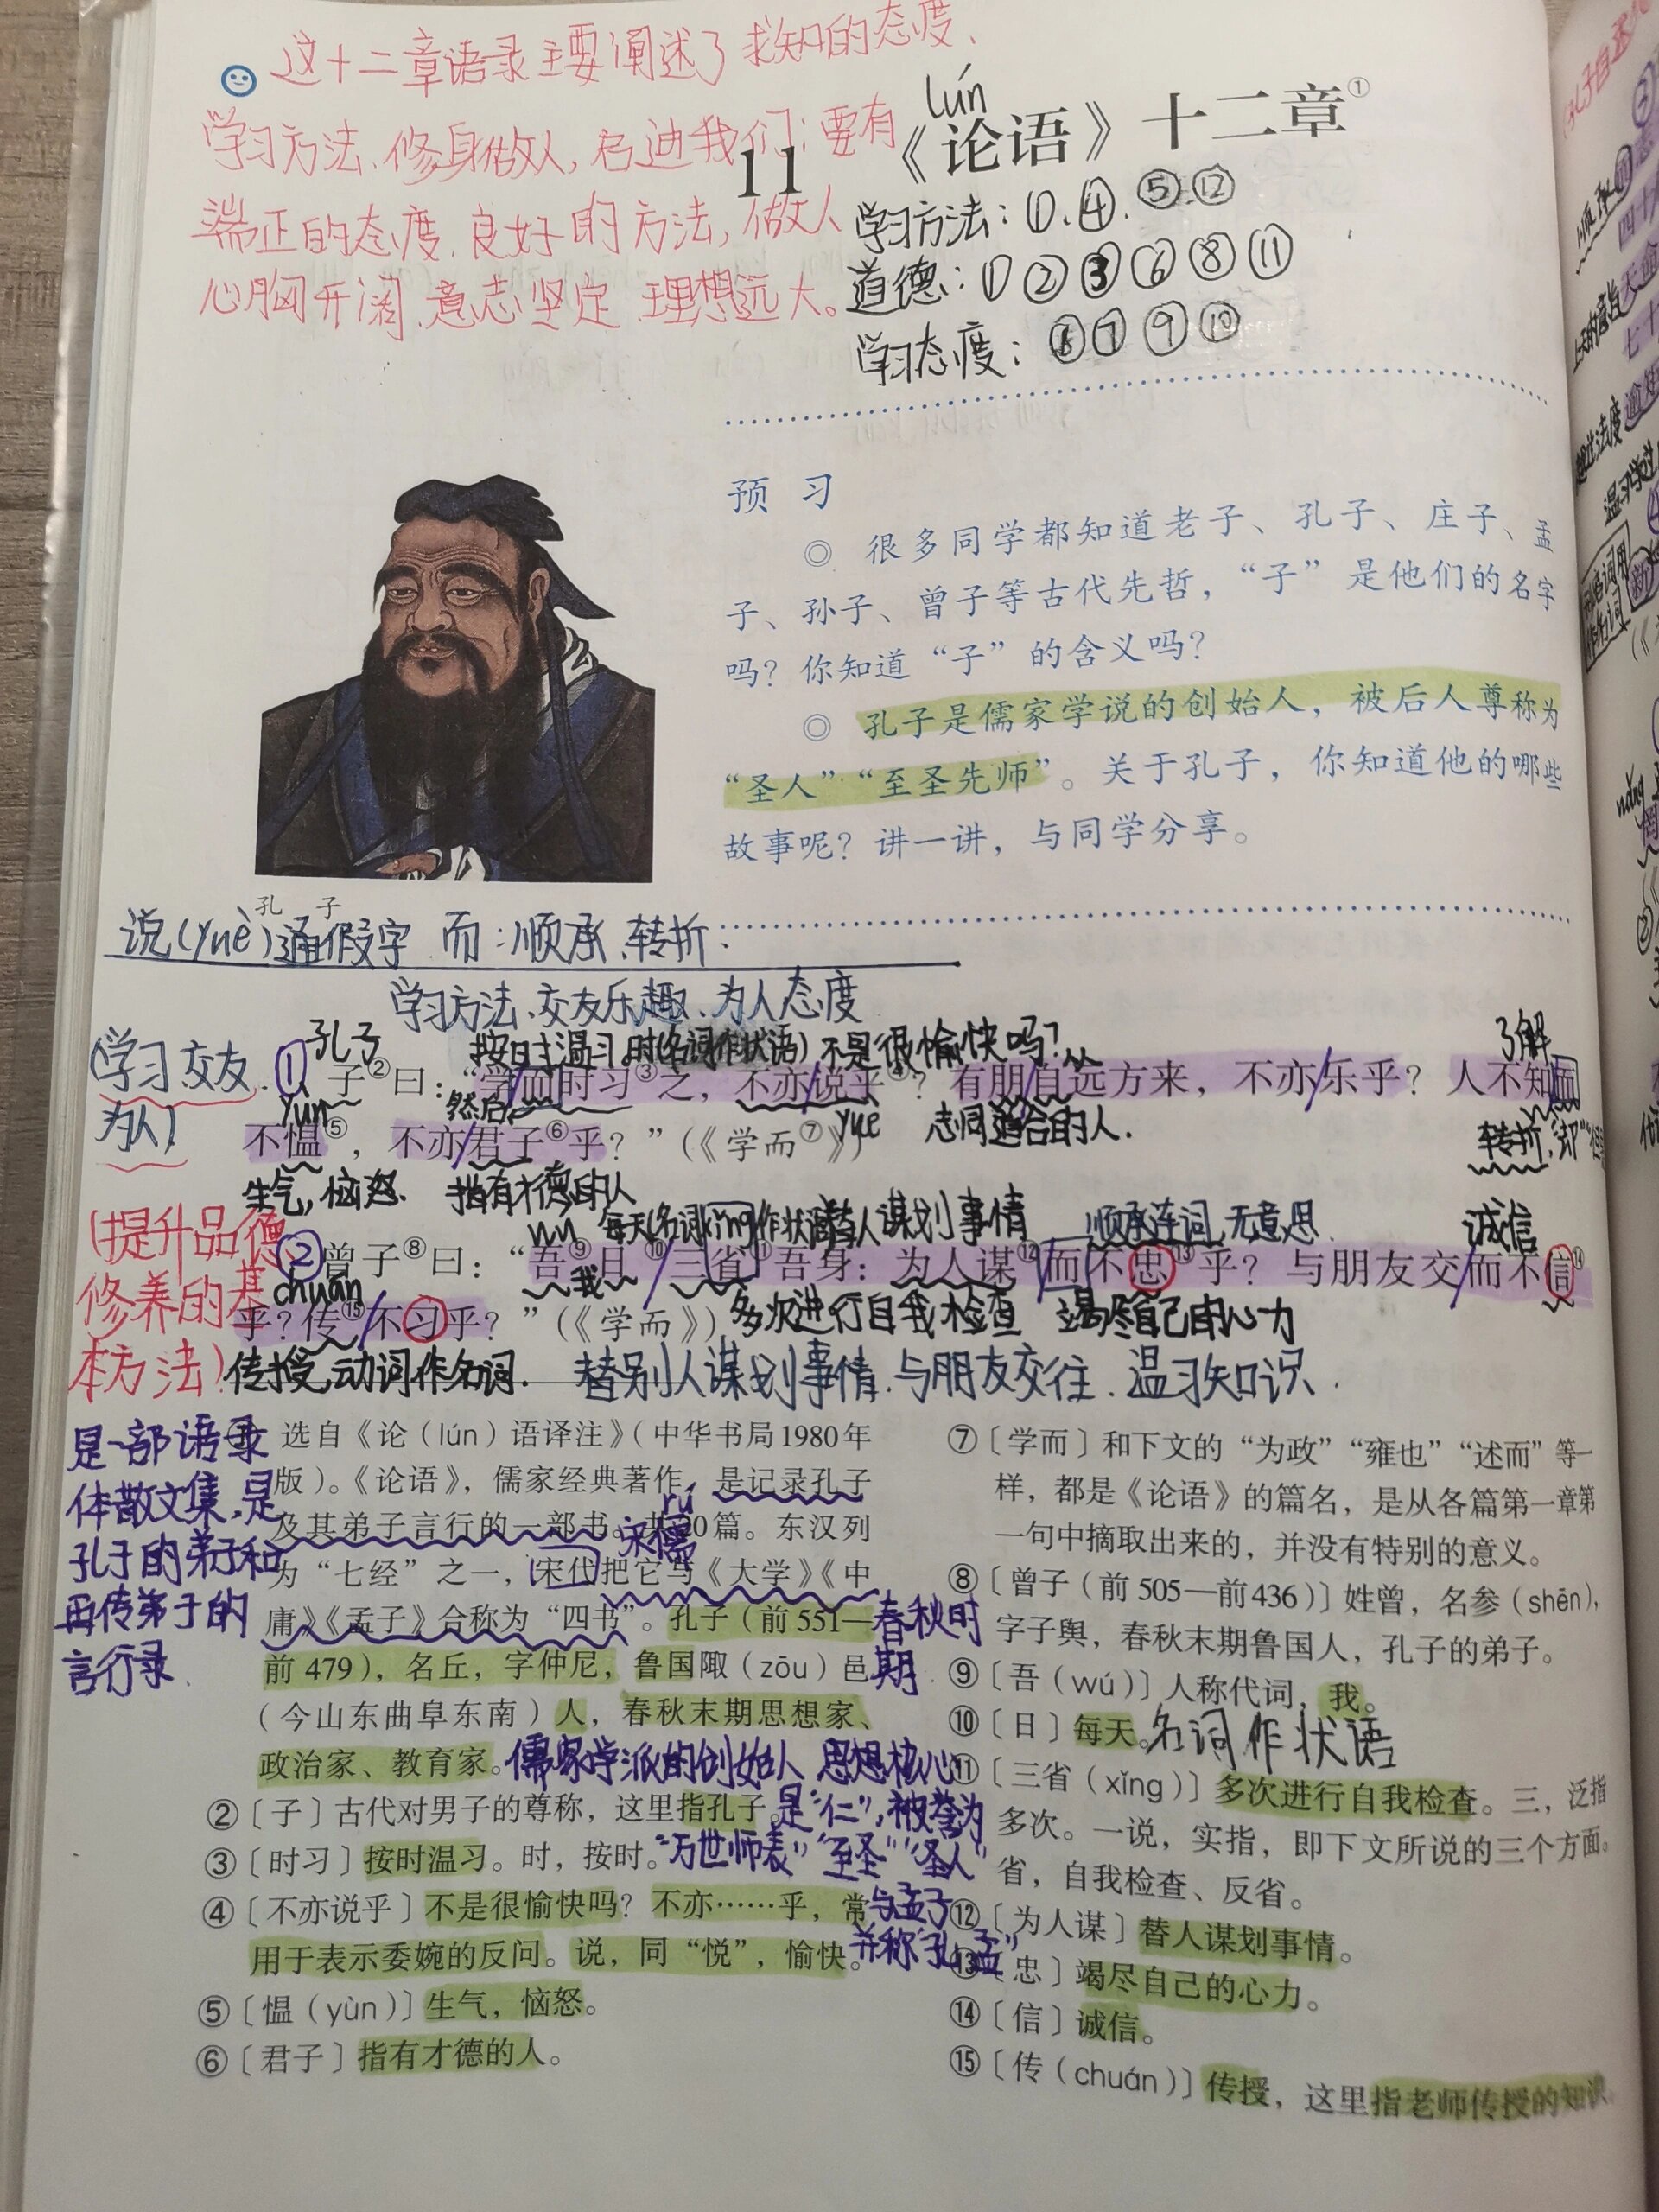 这十二章语录主要阐述了求知的态度、
学习方法、修身做人,启迪我们:要有
端正的态度、良好的方法,做人
心胸开阔、意志坚定、理想远大。
lún
11 《论语》十二章①
学习方法:①、④、⑤⑫
道德:①②③⑥⑧⑪
学习态度:⑥⑦⑨⑩
预 习
◎ 很多同学都知道老子、孔子、庄子、孟
子、孙子、曾子等古代先哲,“子”是他们的名字
吗?你知道“子”的含义吗?
◎ 孔子是儒家学说的创始人,被后人尊称为
“圣人”“至圣先师”。关于孔子,你知道他的哪些
故事呢?讲一讲,与同学分享。
孔 子
说(yuè)通假字 而:顺承、转折.
学习方法、交友乐趣、为人态度
(学习 交友
为人)
孔子 按时温习.时(名词作状语) 不是很愉快吗? 从 了解
① 子②曰:“学而时习③之,不亦说乎④?有朋自远方来,不亦乐乎?人不知而
yùn 然后 yuè 志同道合的人. 转折,“却”
不愠⑤,不亦君子⑥乎?”(《学而⑦》)
生气,恼怒. 指有才德的人
(提升品德
修养的基
本方法)
wú 每天(名词作状语) xǐng 替人谋划事情 顺承连词,无意思. 诚信
② 曾子⑧曰:“吾⑨日⑩三省⑪吾身:为人谋⑫而不忠⑬乎?与朋友交而不信⑭
chuán 我 多次进行自我检查 竭尽自己的心力
乎?传⑮不习乎?”(《学而》)
传授,动词作名词. 替别人谋划事情.与朋友交往.温习知识.
是一部语录
体散文集,是
孔子的弟子和
再传弟子的
言行录.
① 选自《论(lún)语译注》(中华书局1980年
版)。《论语》,儒家经典著作,是记录孔子
及其弟子言行的一部书。共20篇。东汉列
rú
宋儒
为“七经”之一,宋代把它与《大学》《中
庸》《孟子》合称为“四书”。孔子(前551—
前479),名丘,字仲尼,鲁国陬(zōu)邑
春秋时
期
(今山东曲阜东南)人,春秋末期思想家、
政治家、教育家。
儒家学派的创始人 思想核心
是“仁”,被誉为
“万世师表”“至圣”“圣人”
与孟子
并称“孔孟”
②〔子〕古代对男子的尊称,这里指孔子。
③〔时习〕按时温习。时,按时。
④〔不亦说乎〕不是很愉快吗?不亦……乎,常
用于表示委婉的反问。说,同“悦”,愉快。
⑤〔愠(yùn)〕生气,恼怒。
⑥〔君子〕指有才德的人。
⑦〔学而〕和下文的“为政”“雍也”“述而”等一
样,都是《论语》的篇名,是从各篇第一章第
一句中摘取出来的,并没有特别的意义。
⑧〔曾子(前505—前436)〕姓曾,名参(shēn),
字子舆,春秋末期鲁国人,孔子的弟子。
⑨〔吾(wú)〕人称代词,我。
⑩〔日〕每天。名词作状语
⑪〔三省(xǐng)〕多次进行自我检查。三,泛指
多次。一说,实指,即下文所说的三个方面。
省,自我检查、反省。
⑫〔为人谋〕替人谋划事情。
⑬〔忠〕竭尽自己的心力。
⑭〔信〕诚信。
⑮〔传(chuán)〕传授,这里指老师传授的知识。